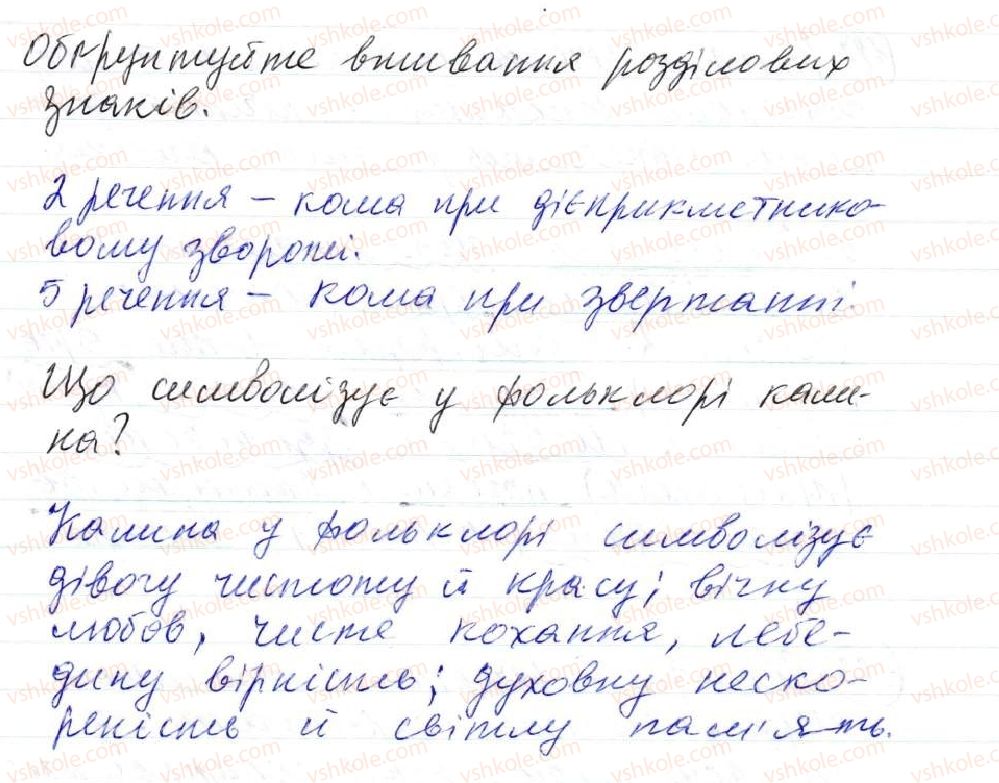 Обґрунтуйте вживання розділових
знаків.
2 речення – кома при дієприкметнико-
вому звороті.
5 речення – кома при звертанні.
Що символізує у фольклорі кали-
на?
Калина у фольклорі символізує
дівочу чистоту й красу; вічну
любов, чисте кохання, лебе-
дину вірність; духовну неско-
реність й світлу пам'ять.